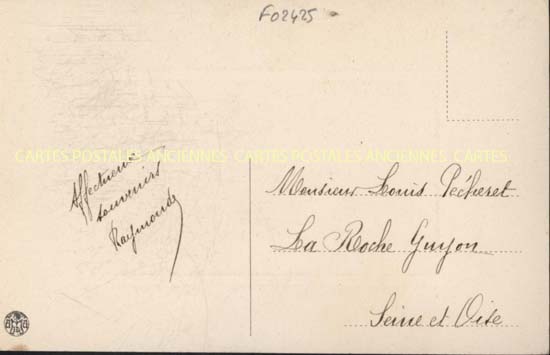 F02425
CARTES POSTALES ANCIENNES CARTES POSTALES ANCIENNES CARTES
Affectueux
souvenirs
Raymonde
Monsieur Louis Pécheret
La Roche Guyon
Seine et Oise